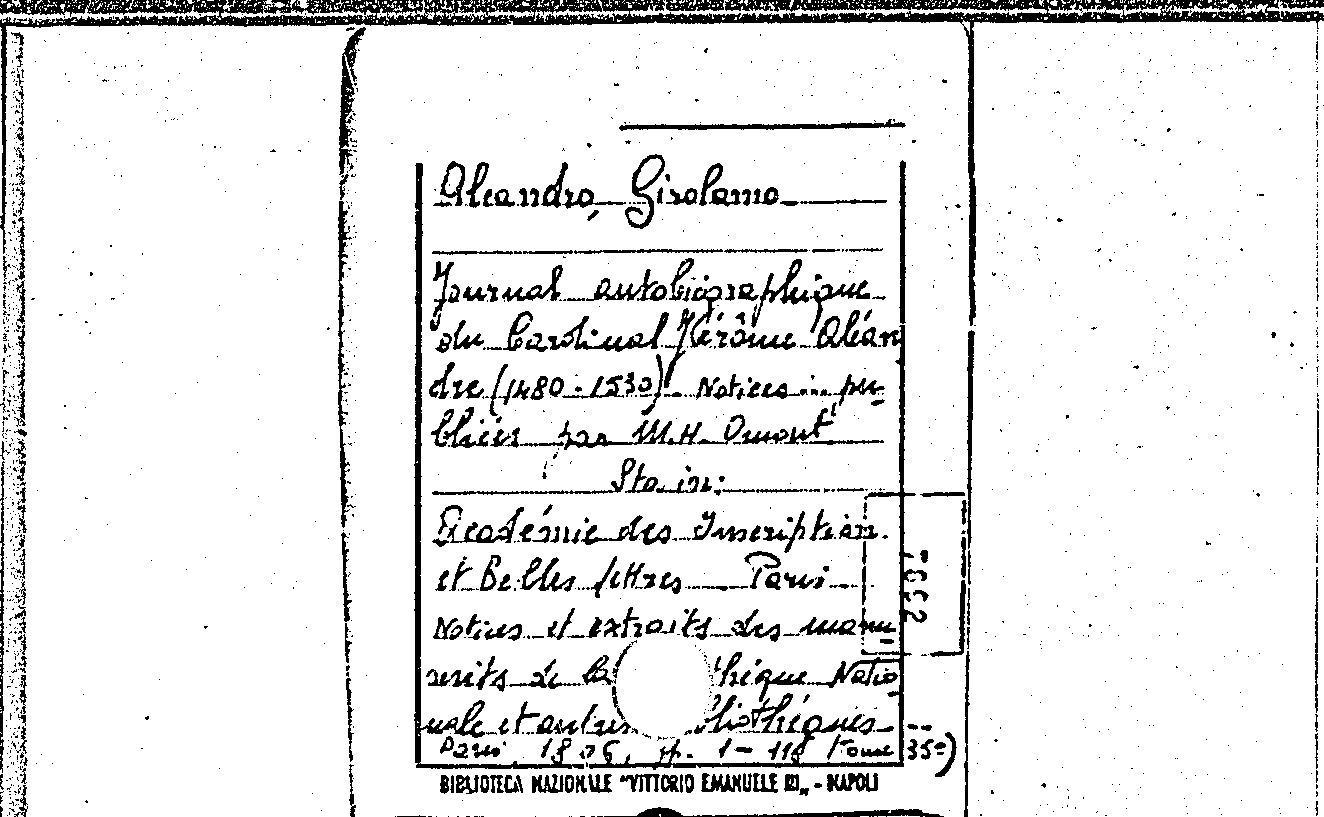 Aleandro, Girolamo
Journal autobiographique
du Cardinal Jérôme Aléan
dre (1480-1530). Notices... pu-
bliées par M. H. Omont
Sta in:
Académie des Inscription.
et Belles lettres Paris
Notices et extraits des manu
scrits de la thèque Natio
nale et autres bliothéques
Paris 1896, pp. 1-118 Tome 35º)
BIBLIOTECA NAZIONALE "VITTORIO EMANUELE III„ - NAPOLI